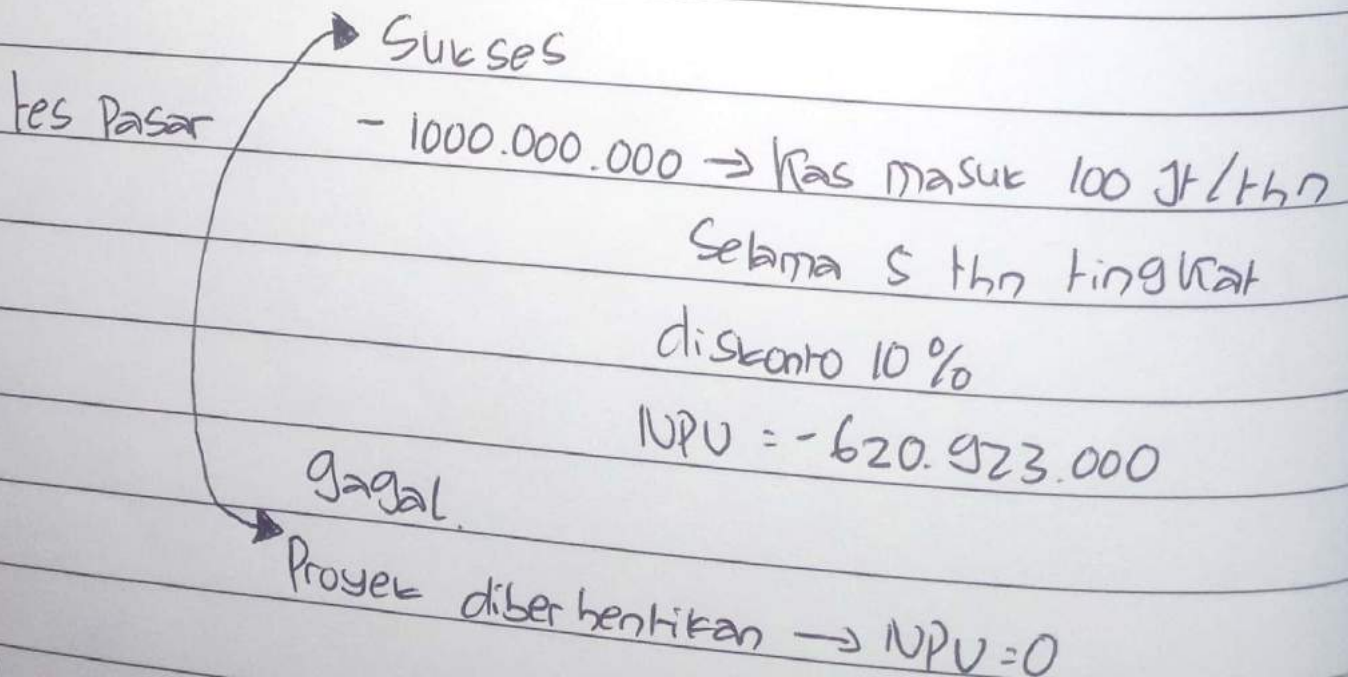 Sukses
tes Pasar
- 1000.000.000 → Kas masuk 100 Jt/thn
Selama 5 thn tingkat
diskonto 10%
NPV = -620.923.000
gagal.
Proyek diberhentikan → NPV=0